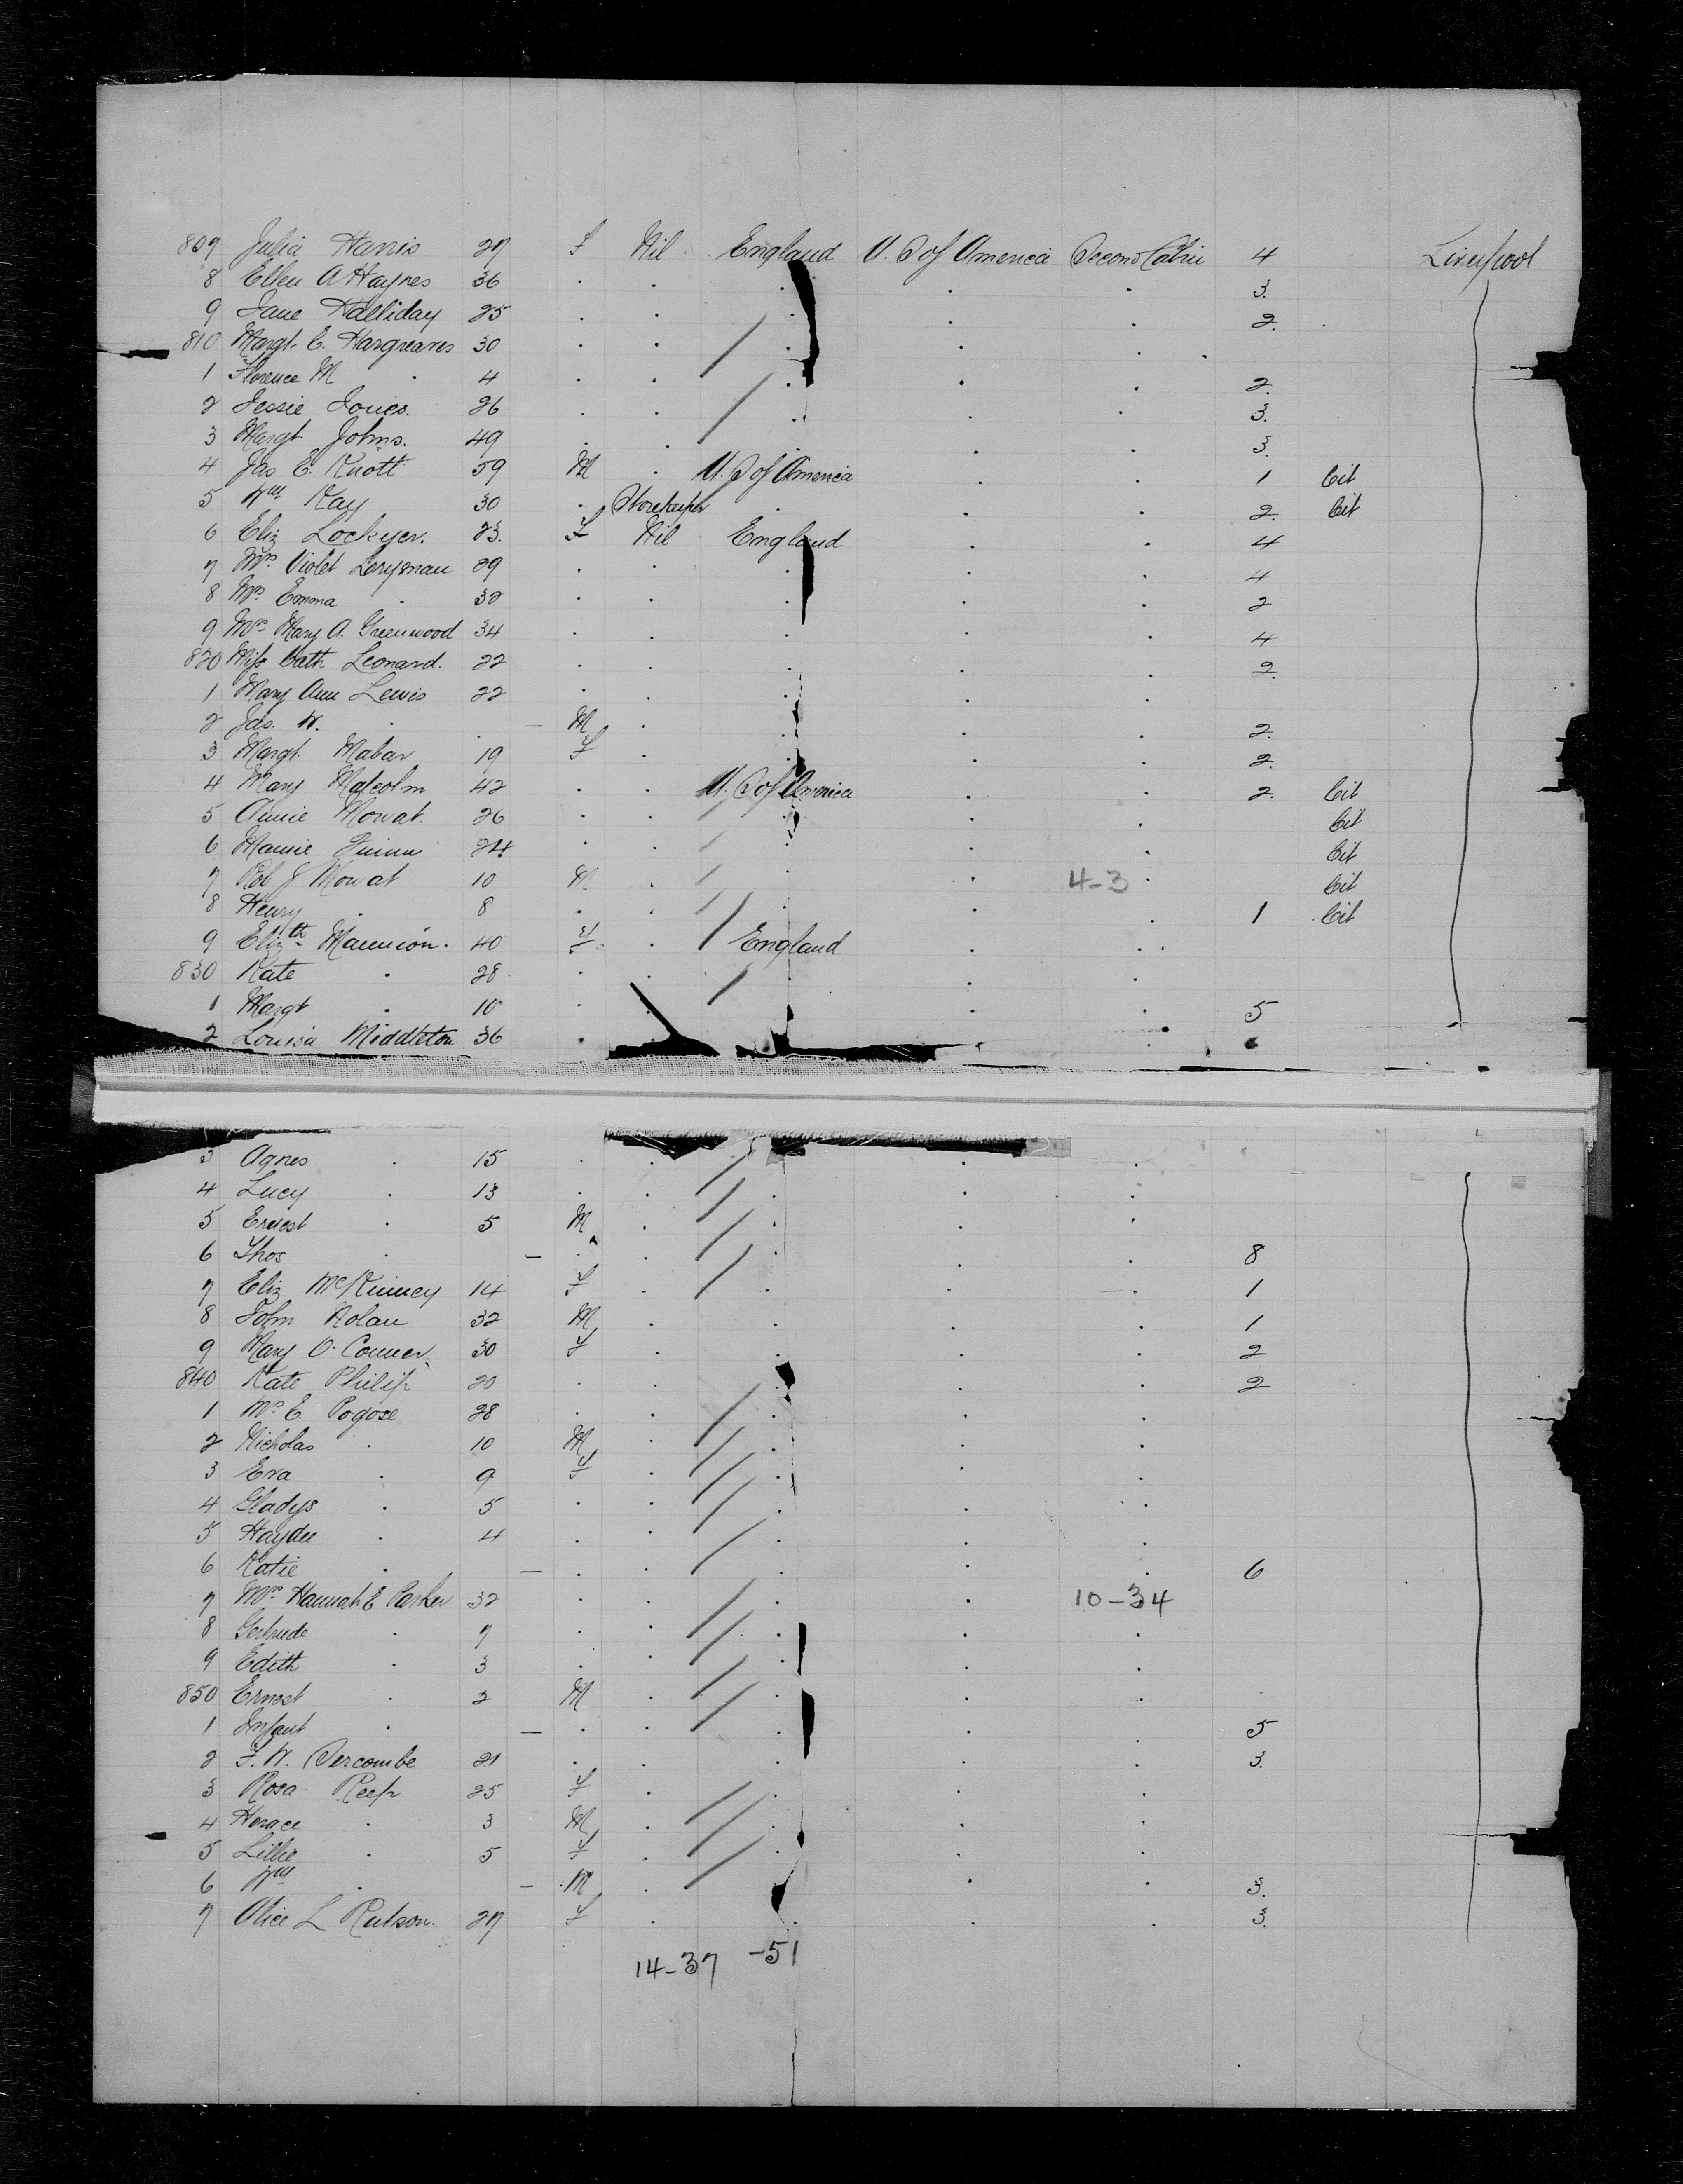 809 Julia Harris 27 F Nil England U. S of America Second Cabin 4 Liverpool
8 Ellen A Haynes 36 . . . . . 3.
9 Jane Halliday 25 . . . . . 2.
810 Margt. E. Hargreaves 30 . . . . .
1 Florence M . 4 . . . . . 2.
2 Jessie Jones. 26 . . . . . 3.
3 Margt. Johns. 49 . . . . . 3.
4 Jas E. Knott 59 M . U. S of America . . 1 Cit
5 Wm Kay 30 . Storekeeper . . . 2. Cit
6 Eliz Lockyer. 23. F Nil England . . 4
7 Mrs. Violet 29 . . . . . 4
8 Mrs. Emma . 32 . . . . . 2
9 Mrs. Mary A. Greenwood 34 . . . . . 4
820 Miss Cath Leonard. 22 . . . . . 2.
1 Mary Ann Lewis 22 . . . . .
2 Jas. W. . - M . . . . 2.
3 Margt. Mabar 19 F . . . . 2.
4 Mary Malcolm 42 . . U. S of America . . 2. Cit
5 Annie Mowat. 26 . . . . . Cit
6 Mamie Quinn 24 . . . . . Cit
7 Rob J Mowat 10 M . . . 4-3 . Cit
8 Henry . 8 . . . . . 1 Cit
9 Elizth Mannion. 40 F . England . .
830 Kate . 28 . . . . .
1 Margt . 10 . . . . 5
2 Louisa Middleton 36 . . .
3 Agnes . 15 . . . .
4 Lucy . 13 . . . . .
5 Ernest . 5 M . . . .
6 Thos . - . . . . . 8
7 Eliz McKinney 14 F . . . . 1
8 John Nolan 32 M . . . . 1
9 Mary O'Conner 30 F . . . . 2
840 Kate Philip 20 . . . . . 2
1 Mrs. E. Pogose 28 . . . . .
2 Nicholas . 10 M . . . .
3 Eva . 9 F . . . .
4 Gladys . 5 . . . . .
5 Haydee . 4 . . . . .
6 Katie . - . . . . . 6
7 Mrs. Hannah E Parker 32 . . . . 10-34
8 Gertrude . 7 . . . . .
9 Edith . 3 . . . . .
850 Ernest . 2 M . . . .
1 Infant . - . . . . . 5
2 F. W. Percombe 21 . . . . . 3.
3 Rosa Reep 25 F . . . .
4 Horace . 3 M . . . .
5 Lillie . 5 F . . . .
6 Wm . - M . . . . 3.
7 Alice L Rutson. 27 F . . . . 3.
14-37 -51